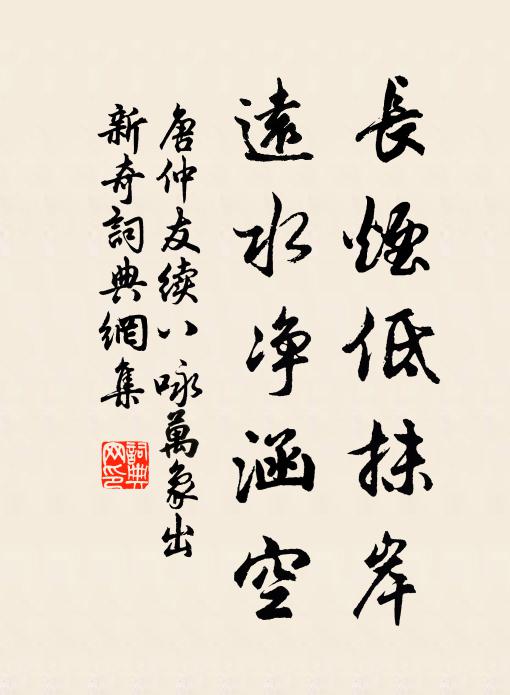 長煙低抹岸
遠水净涵空
唐仲友续八咏萬象出
新奇詞典網集
詞典网印